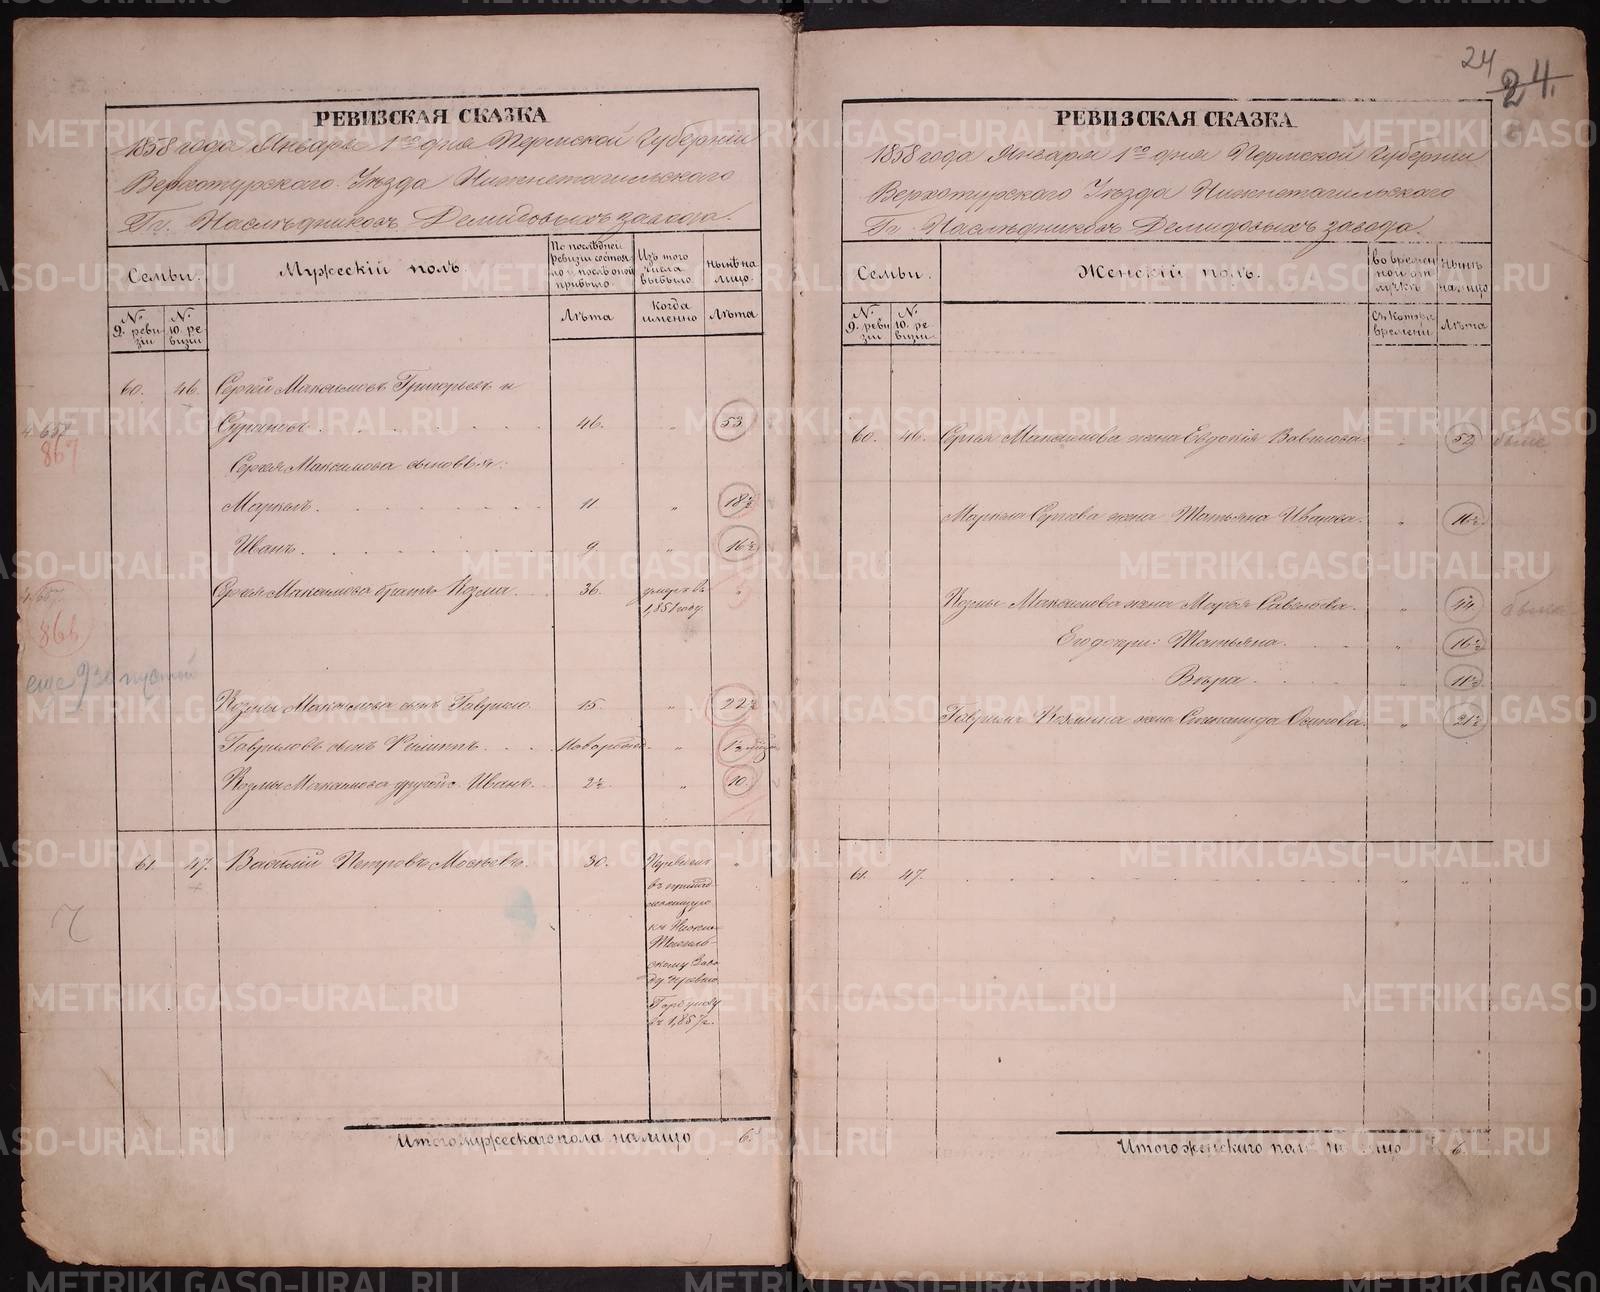 РЕВИЗСКАЯ СКАЗКА
1858 года Января 1го дня Пермской Губернiи
Верхотурскаго Уѣзда Нижнетагильскаго
Гг. Наслѣдниковъ Демидовыхъ завода.
Семьи.
Мужескiй полъ.
По послѣдней ревизiи состояло и послѣ оной прибыло.
Изъ того числа выбыло.
Нынѣ на лицо.
№ 9. ревизiи
№ 10. ревизiи
Лѣта
Когда именно
Лѣта
60. 46. Сергѣй Максимовъ Григорьевъ и
46. 53
Сергѣя Максимова сыновья:
Маркелъ. 11 " 18½
Иванъ. 9 " 16½
Сергѣя Максимова братъ Козма. 36. умеръ въ 1,851 году. "
Козмы Максимова сынъ Гаврило. 15 " 22½
Гавриловъ сынъ новорожд. "
Козмы Максимова другой. Иванъ. 2½ " 10
61. 47. Василiй Петровъ 30. "
въ
къ Нижне-
Тагиль-
скому Заво
ду деревню
Горбунову
въ 1,857 г.
Итого мужескаго пола на лицо 6.
867
866
еще 930 пустой
24
24.
РЕВИЗСКАЯ СКАЗКА
1858 года Января 1го дня Пермской Губернiи
Верхотурскаго Уѣзда Нижнетагильскаго
Гг. Наслѣдниковъ Демидовыхъ завода.
Семьи.
Женскiй полъ.
Во временной отлучкѣ
Нынѣ на лицо
№ 9. ревизiи
№ 10. ревизiи
Съ котора времени
Лѣта
60. 46. Сергѣя Максимова жена Евдокiя Вавилова " 52
Маркела Сергѣева жена Татьяна Иванова. " 16½
Козмы Максимова жена Марѳа Савельева. " 44
Его дочери: Татьяна. " 16½
Вѣра. " 11½
Гаврила Козмина жена Степанида Осипова. " 21½
61. 47. " "
Итого женскаго пола на лицо 6.
METRIKI.GASO-URAL.RU